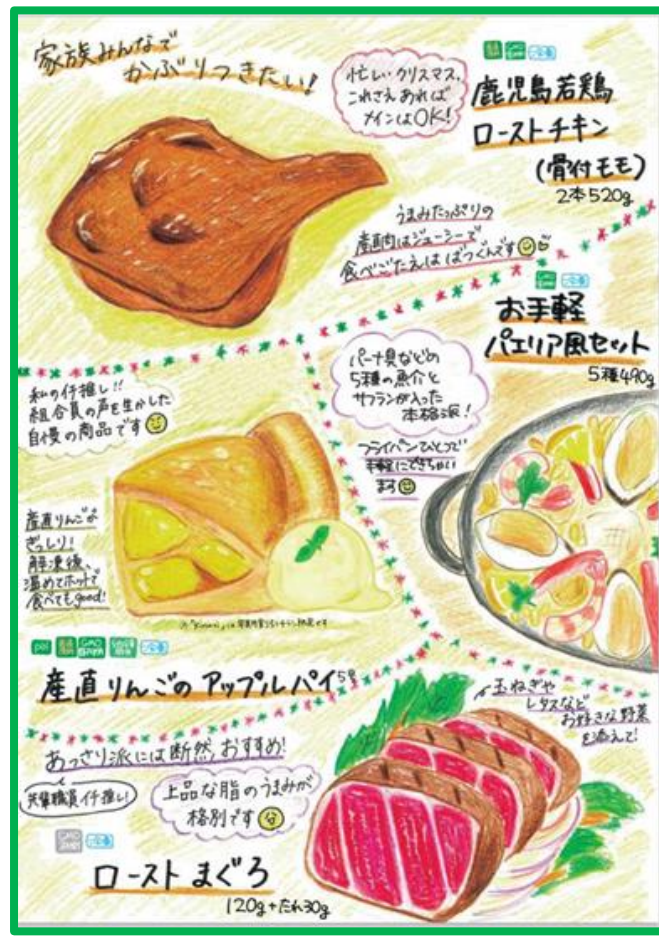 家族みんなで
かぶりつきたい!
忙しいクリスマス、
これさえあれば
メインはOK!
冷凍
鹿児島若鶏
ローストチキン
(骨付モモ)
2本520g
うまみたっぷりの
産直肉はジューシーで
食べごたえはばつぐんです
冷凍
お手軽
パエリア風セット
5種490g
パーナ貝などの
5種の魚介と
サフランが入った
本格派!
フライパンひとつで
手軽にできちゃい
ます
私の1推し!!
組合員の声を生かした
自慢の商品です
産直りんごが
ぎっしり!
解凍後、
温めてホットで
食べてもgood!
冷凍
産直りんごのアップルパイ 5号
玉ねぎや
レタスなど
お好きな野菜
を添えて!
あっさり派には断然、おすすめ!
先輩職員イチ推し!
上品な脂のうまみが
格別です
冷凍
ローストまぐろ
120g+たれ30g